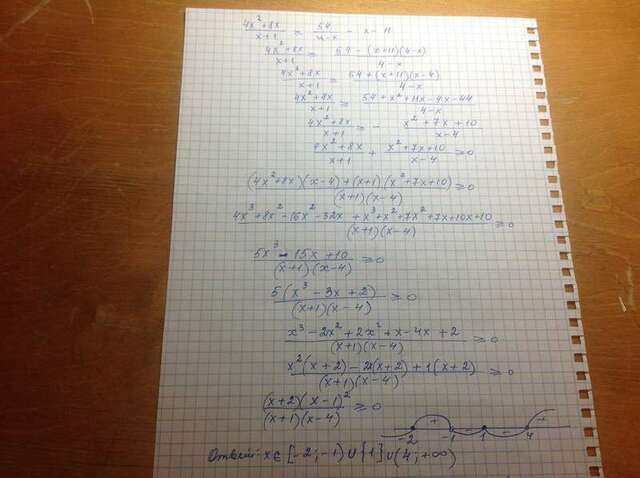 (4x²+8x)/(x+1) = 54/(4-x) - x - 11
(4x²+8x)/(x+1) = (54-(x+11)(4-x))/(4-x)
(4x²+8x)/(x+1) = (54+(x+11)(x-4))/(4-x)
(4x²+8x)/(x+1) = (54+x²+11x-4x-44)/(4-x)
(4x²+8x)/(x+1) = - (x²+7x+10)/(x-4)
(4x²+8x)/(x+1) + (x²+7x+10)/(x-4) ≥0
((4x²+8x)(x-4)+(x+1)(x²+7x+10))/((x+1)(x-4)) ≥0
(4x³+8x²-16x²-32x+x³+x²+7x²+7x+10x+10)/((x+1)(x-4)) ≥0
(5x³-15x+10)/((x+1)(x-4)) ≥0
5(x³-3x+2)/((x+1)(x-4)) ≥0
(x³-2x²+2x²+x-4x+2)/((x+1)(x-4)) ≥0
(x²(x+2)-2x(x+2)+1(x+2))/((x+1)(x-4)) ≥0
((x+2)(x-1)²)/((x+1)(x-4)) ≥0
- + - - +
-2 -1 1 4
Ответ: x∈[-2;-1)∪{1}∪(4;+∞)